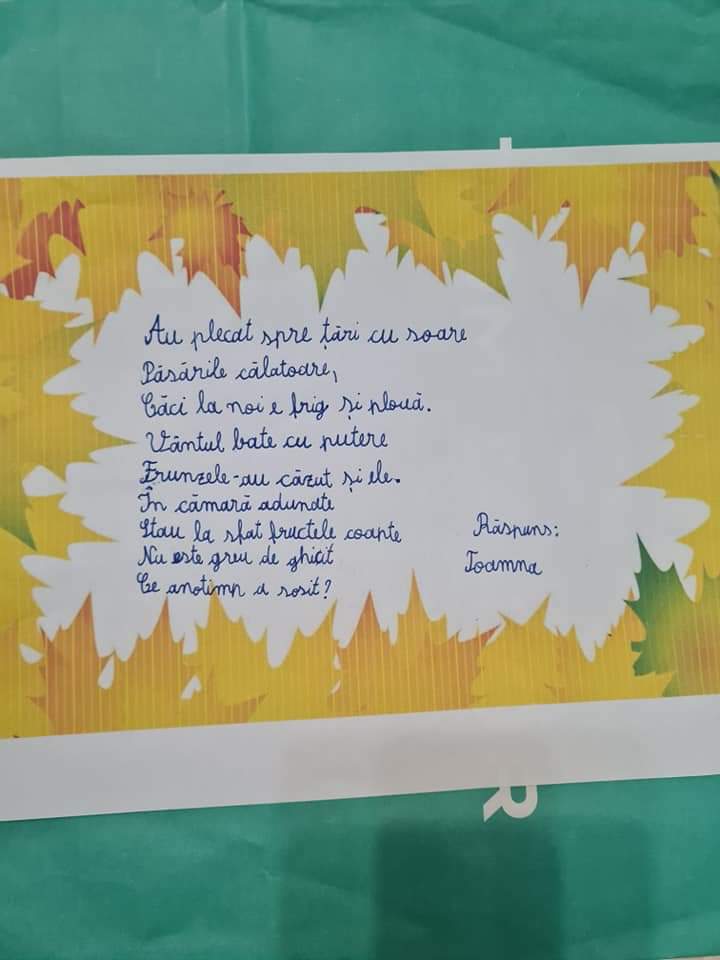 Au plecat spre țări cu soare
Păsările călatoare,
Căci la noi e frig și plouă.
Vântul bate cu putere
Frunzele-au căzut și ele.
În cămară adunate
Stau la sfat fructele coapte
Nu este greu de ghicit
Ce anotimp a sosit?
Răspuns:
Toamna
R